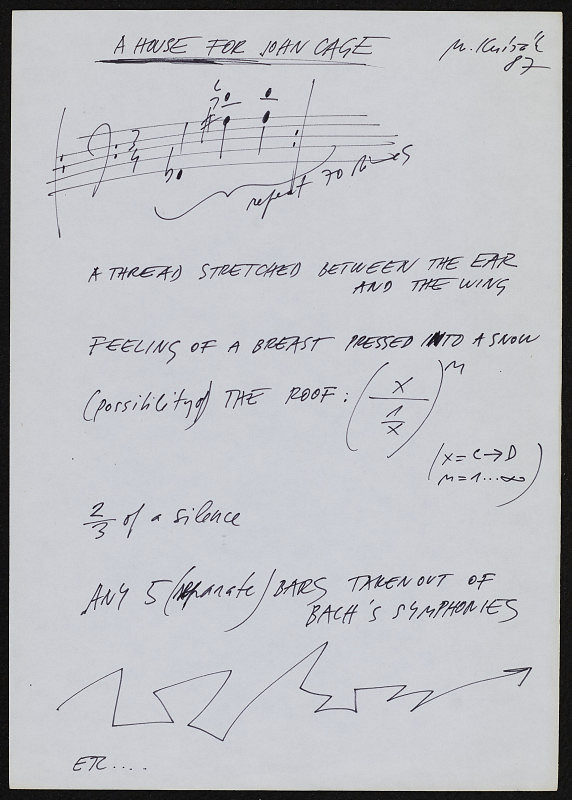 A HOUSE FOR JOHN CAGE
M. Knížák
87
3
4
repeat 70 times
A THREAD STRETCHED BETWEEN THE EAR
AND THE WING
FEELING OF A BREAST PRESSED INTO A SNOW
(possibility of) THE ROOF: (x / (1/x))^n
(x = C → D
n = 1 ... ∞)
2/3 of a silence
ANY 5 (separate) BARS TAKEN OUT OF
BACH'S SYMPHONIES
ETC....